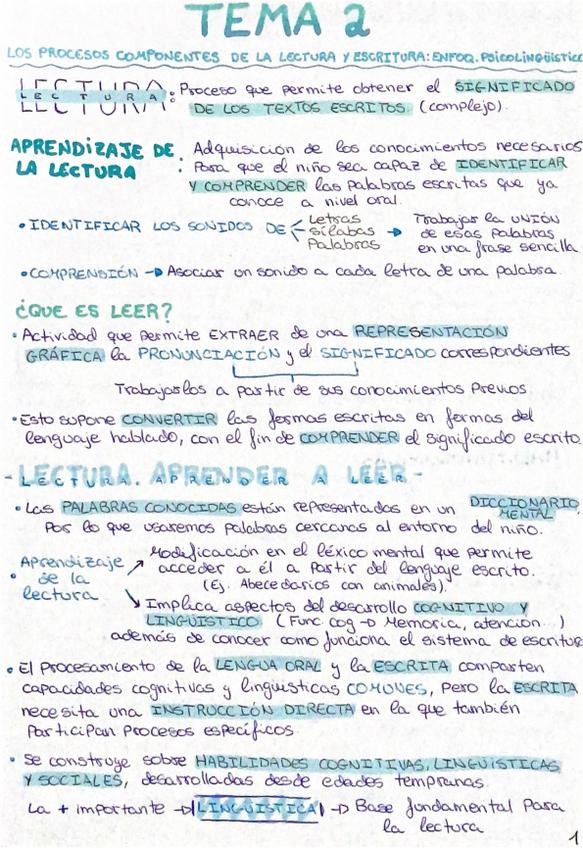 TEMA 2
LOS PROCESOS COMPONENTES DE LA LECTURA Y ESCRITURA: ENFOQ. PSICOLINGÜÍSTICO
LECTURA: Proceso que permite obtener el SIGNIFICADO
DE LOS TEXTOS ESCRITOS. (complejo).
APRENDIZAJE DE LA LECTURA: Adquisición de los conocimientos necesarios
para que el niño sea capaz de IDENTIFICAR
Y COMPRENDER las palabras escritas que ya
conoce a nivel oral.
• IDENTIFICAR LOS SONIDOS DE Letras
Sílabas
Palabras
→ Trabajar la UNIÓN
de esas palabras
en una frase sencilla.
• COMPRENSIÓN → Asociar un sonido a cada letra de una palabra.
¿QUE ES LEER?
• Actividad que permite EXTRAER de una REPRESENTACIÓN
GRÁFICA la PRONUNCIACIÓN y el SIGNIFICADO correspondientes
Trabajarlos a partir de sus conocimientos previos.
• Esto supone CONVERTIR las formas escritas en formas del
lenguaje hablado, con el fin de COMPRENDER el significado escrito.
- LECTURA. APRENDER A LEER -
• Las PALABRAS CONOCIDAS están representadas en un DICCIONARIO MENTAL
por lo que usaremos palabras cercanas al entorno del niño.
• Aprendizaje
de la
lectura
↗ Modificación en el léxico mental que permite
acceder a él a partir del lenguaje escrito.
(Ej. Abecedarios con animales).
↘ Implica aspectos del desarrollo COGNITIVO Y
LINGÜÍSTICO (Func. cog → Memoria, atención...)
además de conocer como funciona el sistema de escritura
• El procesamiento de la LENGUA ORAL y la ESCRITA comparten
capacidades cognitivas y lingüísticas COMUNES, pero la ESCRITA
necesita una INSTRUCCIÓN DIRECTA en la que también
participan procesos específicos.
• Se construye sobre HABILIDADES COGNITIVAS, LINGÜISTICAS
Y SOCIALES, desarrolladas desde edades tempranas.
La + importante → LINGÜÍSTICA → Base fundamental para
la lectura
1